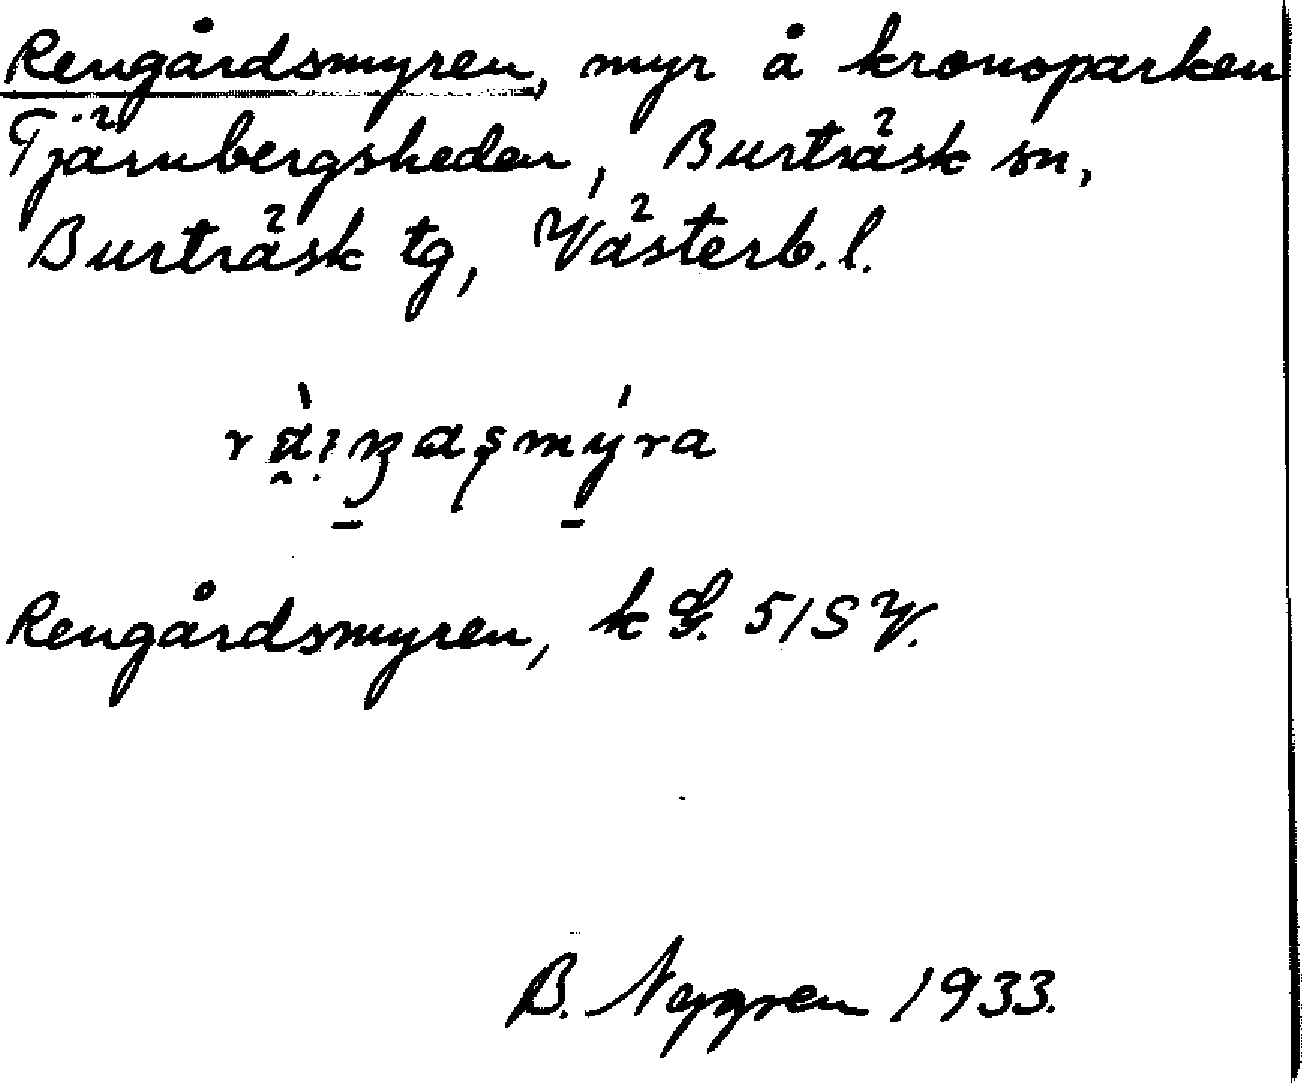 Rengårdsmyren, myr å kronoparken
Tjärnbergsheden, Burträsk sn,
Burträsk tg, Västerb. l.
Rengårdsmyren, k G. 51 SV.
B. Nygren 1933.